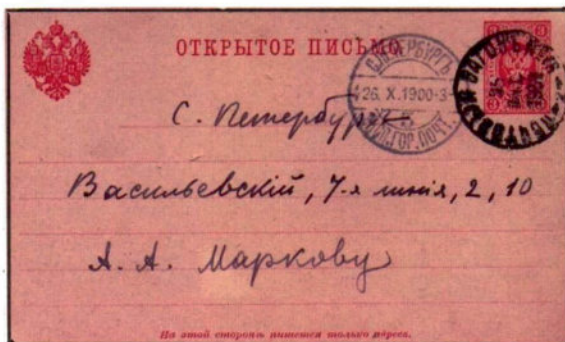 ОТКРЫТОЕ ПИСЬМО
С.ПЕТЕРБУРГЪ
26. X. 1900
ГОР. ПОЧТ.
ПОЧТОВЫЙ ВАГОНЪ
3
3
С. Петербург
Васильевскій, 7-я линія, 2, 10
А. А. Маркову
На этой сторонѣ пишется только адресъ.